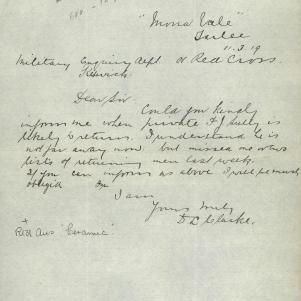 "Mona Vale"
11.3.19
Military Enquiry Dept. or Red Cross.
Dear Sir
Could you kindly
inform me when private F J Sully is
likely to return. I understand he is
not far away now. but missed me
lists of returning men last week.
If you can inform as above I will be much
obliged
I am
Yours truly
D L Clarke.
Red Aus "Ceramic"